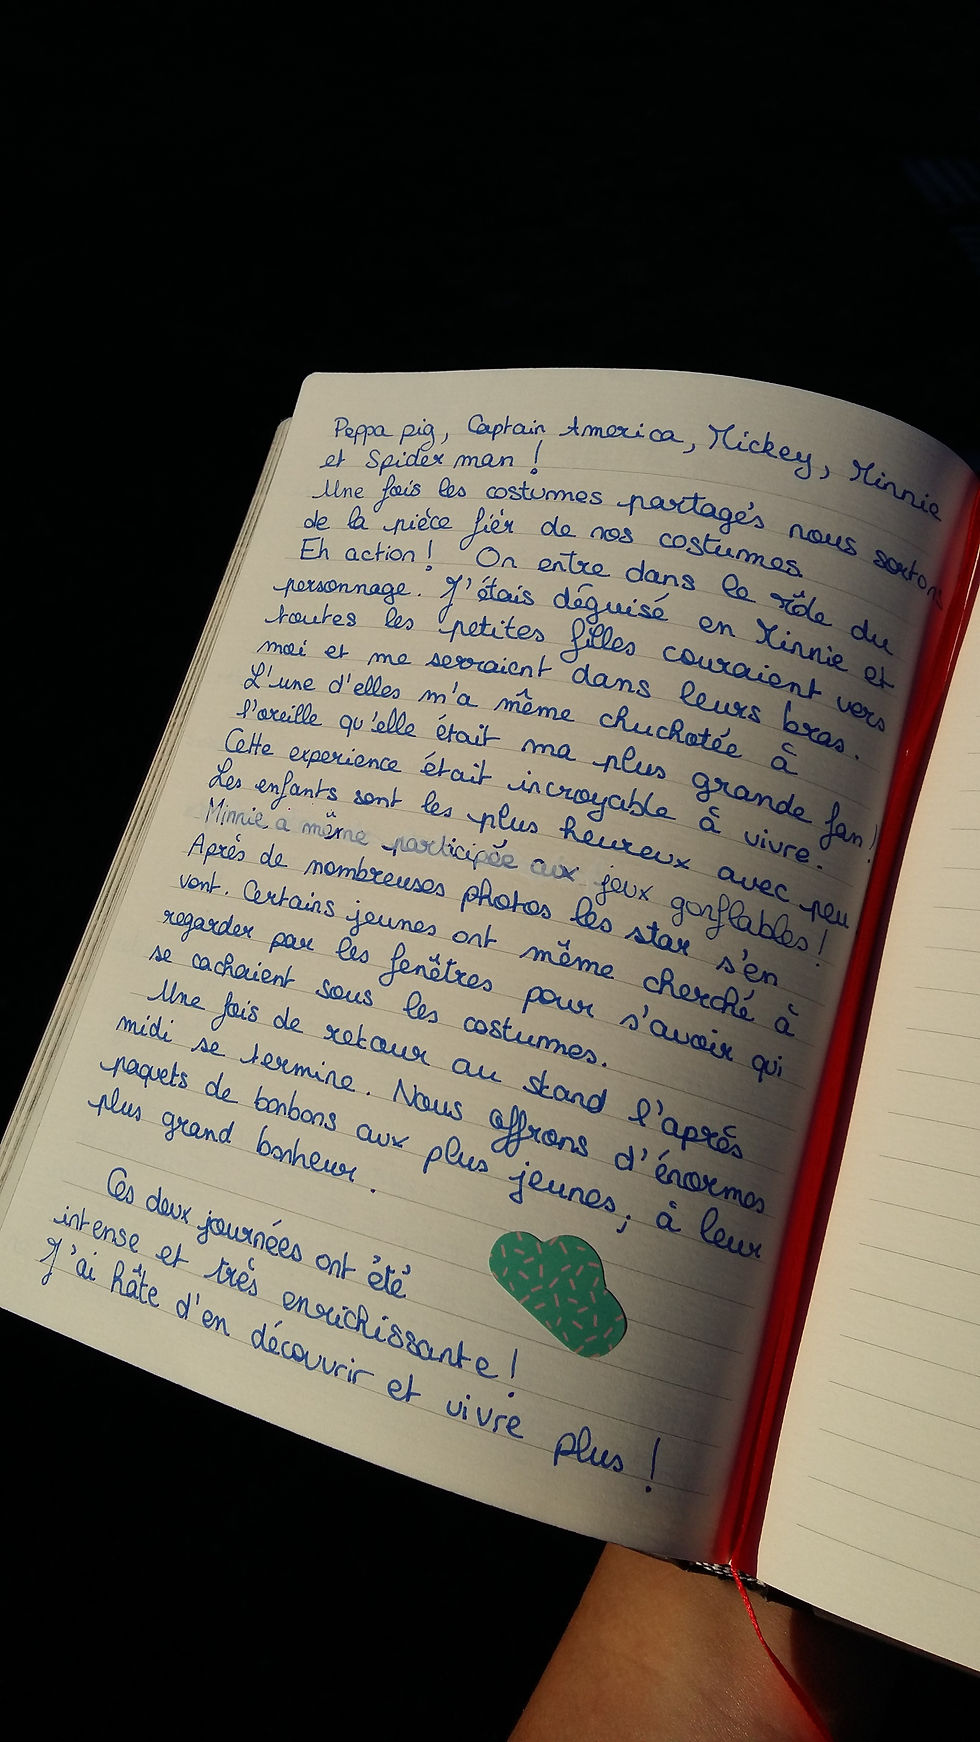 Peppa pig, Captain America, Mickey, Minnie
et Spider man !
Une fois les costumes partagés nous sortons
de la pièce fièr de nos costumes.
Eh action ! On entre dans le rôle du
personnage. J'étais déguisé en Minnie et
toutes les petites filles couraient vers
moi et me serraient dans leurs bras.
L'une d'elles m'a même chuchotée à
l'oreille qu'elle était ma plus grande fan !
Cette experience était incroyable à vivre.
Les enfants sont les plus heureux avec peu
Minnie a même participée aux jeux gonflables !
Après de nombreuses photos les star s'en
vont. Certains jeunes ont même cherché à
regarder par les fenêtres pour s'avoir qui
se cachaient sous les costumes.
Une fois de retour au stand l'après
midi se termine. Nous offrons d'énormes
paquets de bonbons aux plus jeunes, à leur
plus grand bonheur.
Ces deux journées ont été
intense et très enrichissante !
J'ai hâte d'en découvrir et vivre plus !